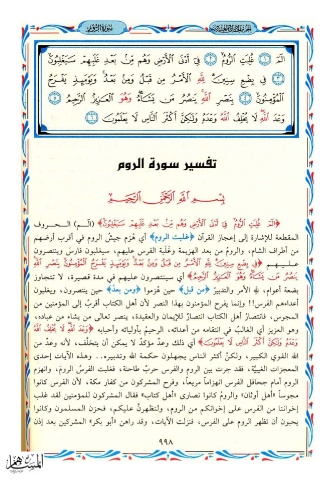 سورة الروم
الٓمٓ ۝ غُلِبَتِ الرُّومُ ۝ فِي أَدْنَى الْأَرْضِ وَهُم مِّن بَعْدِ غَلَبِهِمْ سَيَغْلِبُونَ ۝
فِي بِضْعِ سِنِينَ لِلَّهِ الْأَمْرُ مِن قَبْلُ وَمِن بَعْدُ وَيَوْمَئِذٍ يَفْرَحُ
الْمُؤْمِنُونَ ۝ بِنَصْرِ اللَّهِ يَنصُرُ مَن يَشَاءُ وَهُوَ الْعَزِيزُ الرَّحِيمُ ۝
وَعْدَ اللَّهِ لَا يُخْلِفُ اللَّهُ وَعْدَهُ وَلَٰكِنَّ أَكْثَرَ النَّاسِ لَا يَعْلَمُونَ ۝
تفسير سورة الروم
بسم الله الرحمن الرحيم
﴿الٓمٓ غُلِبَتِ الرُّومُ فِي أَدْنَى الْأَرْضِ وَهُم مِّن بَعْدِ غَلَبِهِمْ سَيَغْلِبُونَ﴾ (الٓم) الحروف
المقطعة للإشارة إلى إعجاز القرآن ﴿غلبت الروم﴾ أي هُزم جيشُ الروم في أقرب أرضهم
من أطراف الشام، والرومُ من بعد الهزيمة وغلبة الفرس عليهم، سيغلبون فارسَ وينتصرون
عليهم ﴿فِي بِضْعِ سِنِينَ لِلَّهِ الْأَمْرُ مِن قَبْلُ وَمِن بَعْدُ وَيَوْمَئِذٍ يَفْرَحُ الْمُؤْمِنُونَ بِنَصْرِ اللَّهِ
يَنصُرُ مَن يَشَاءُ وَهُوَ الْعَزِيزُ الرَّحِيمُ﴾ أي سينتصرون عليهم في مدة قصيرة، لا تتجاوز
بضعة أعوام، لله الأمر والتدبيرُ ﴿من قبل﴾ حين هُزموا ﴿ومن بعد﴾ حين ينتصرون، ويغلبون
أعداءهم الفرس!! وإنما يفرح المؤمنون بهذا النصر لأن أهل الكتاب أقربُ إلى المؤمنين من
المجوس، فانتصارُ أهل الكتاب انتصارٌ للإيمان والعقيدة، ينصر تعالى من يشاء من عباده،
وهو العزيز أي الغالبُ في انتقامه من أعدائه، الرحيمُ بأوليائه وأحبابه ﴿وَعْدَ اللَّهِ لَا يُخْلِفُ اللَّهُ
وَعْدَهُ وَلَٰكِنَّ أَكْثَرَ النَّاسِ لَا يَعْلَمُونَ﴾ أي ذلك وعدٌ مؤكدٌ لا يمكن أن يتخلَّف، لأنه وعدٌ من
الله القوي الكبير، ولكنَّ أكثر الناس يجهلون حكمة الله وتدبيره.. وهذه الآيات إحدى
المعجزات الغيبية، فقد جرت بين الروم والفرس حربٌ طاحنة، فغلبت الفرسُ الرومَ، وانهزم
الروم أمام جحافل الفرس انهزاماً مريعاً، وفرح المشركون من كفار مكة، لأن الفرس كانوا
مجوساً «أهل أوثان» والرومُ كانوا نصارى «أهل كتاب» فقال المشركون للمؤمنين لقد غلب
إخواننا من الفرس على إخوانكم من الروم، ولنظهرنَّ عليكم، فحزن المسلمون وكانوا
يحبون أن تظهر الروم على الفرس، فنزلت الآيات، وقد راهن «أبو بكر» المشركين بعد إذن
٩٩٨